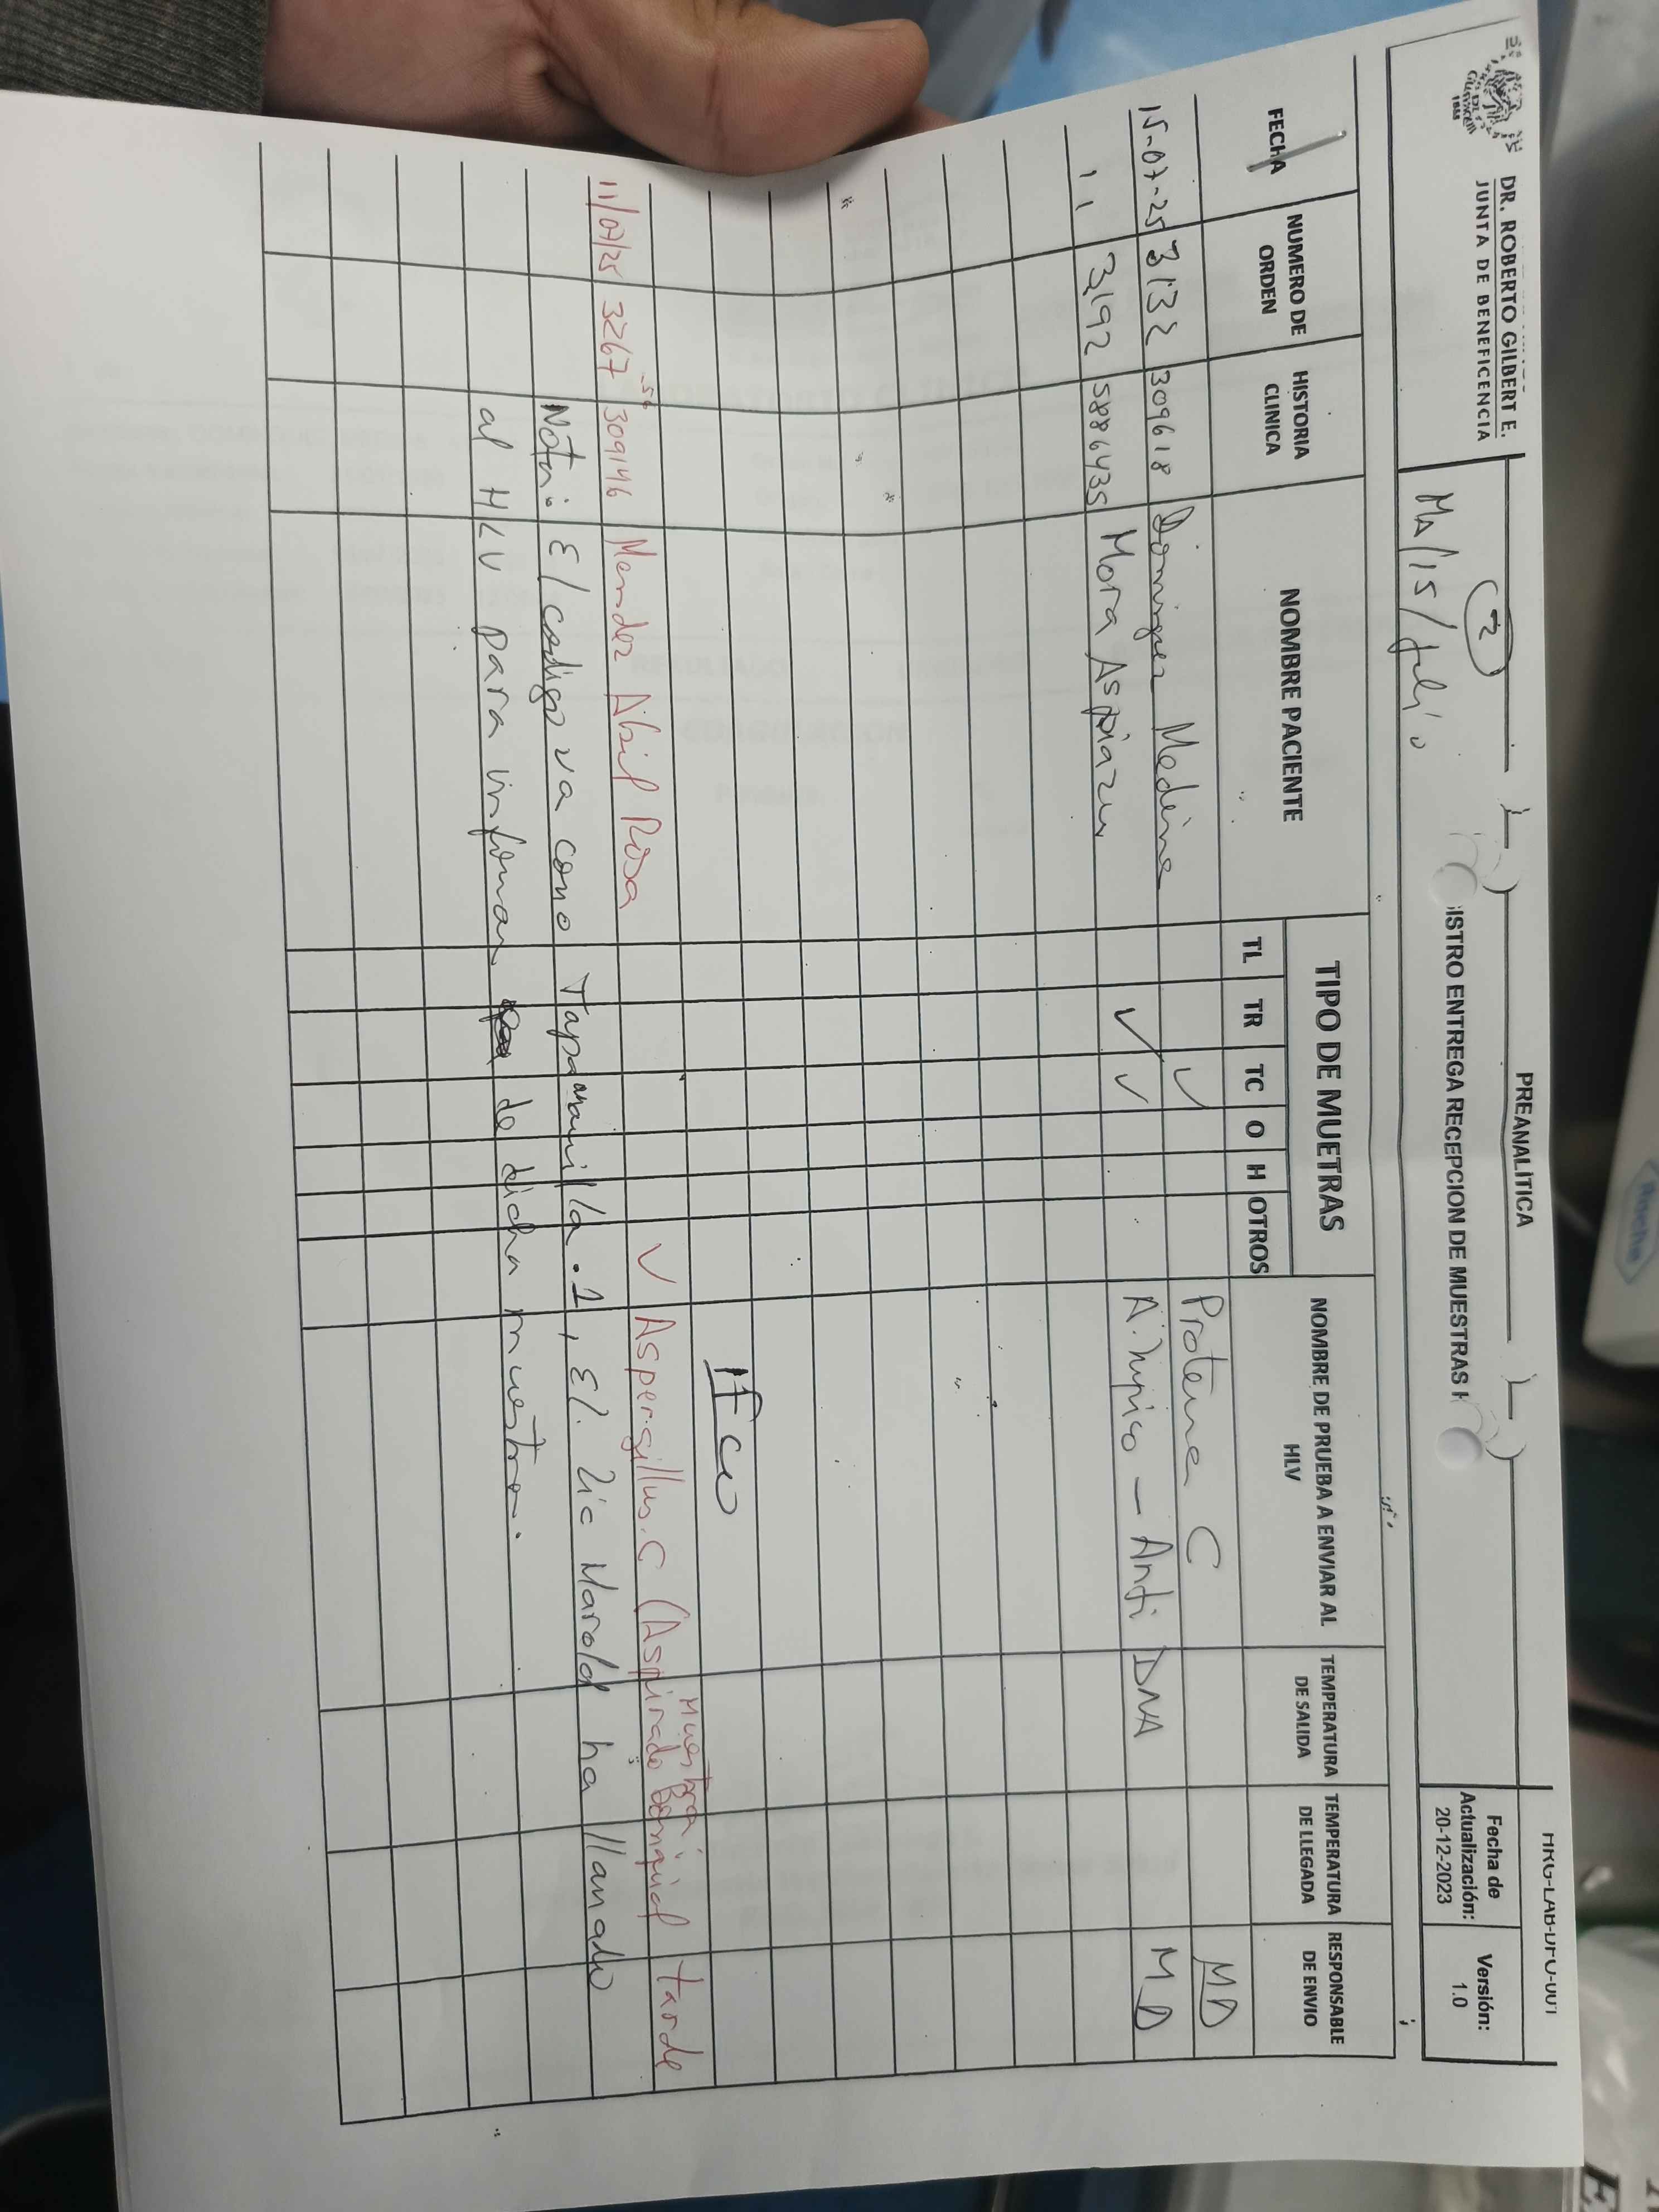 DR. ROBERTO GILBERT E.
JUNTA DE BENEFICENCIA
1888
PREANALÍTICA
ISTRO ENTREGA RECEPCION DE MUESTRAS H
HRG-LAB-DFC-001
Fecha de Actualización: 20-12-2023
Versión: 1.0
2
MA/15/Julio
FECHA NUMERO DE ORDEN HISTORIA CLINICA NOMBRE PACIENTE TIPO DE MUETRAS NOMBRE DE PRUEBA A ENVIAR AL HLV TEMPERATURA DE SALIDA TEMPERATURA DE LLEGADA RESPONSABLE DE ENVIO
TL TR TC O H OTROS
15-07-25 3132 309618 Dominguez Medina ✓ Proteina C MD
11 3192 5886435 Mora Aspiazu ✓ ✓ Anti DNA MD
Muestra
11/07/25 3267 309146 Mendez Abil Rosa ✓ Aspergillus.C (Aspirado Bronquial tarde
Nota: El codigo va como Tapa amarilla.1, El Lic Marold ha llamado
al HLV para informar de dicha muestra.
Roche